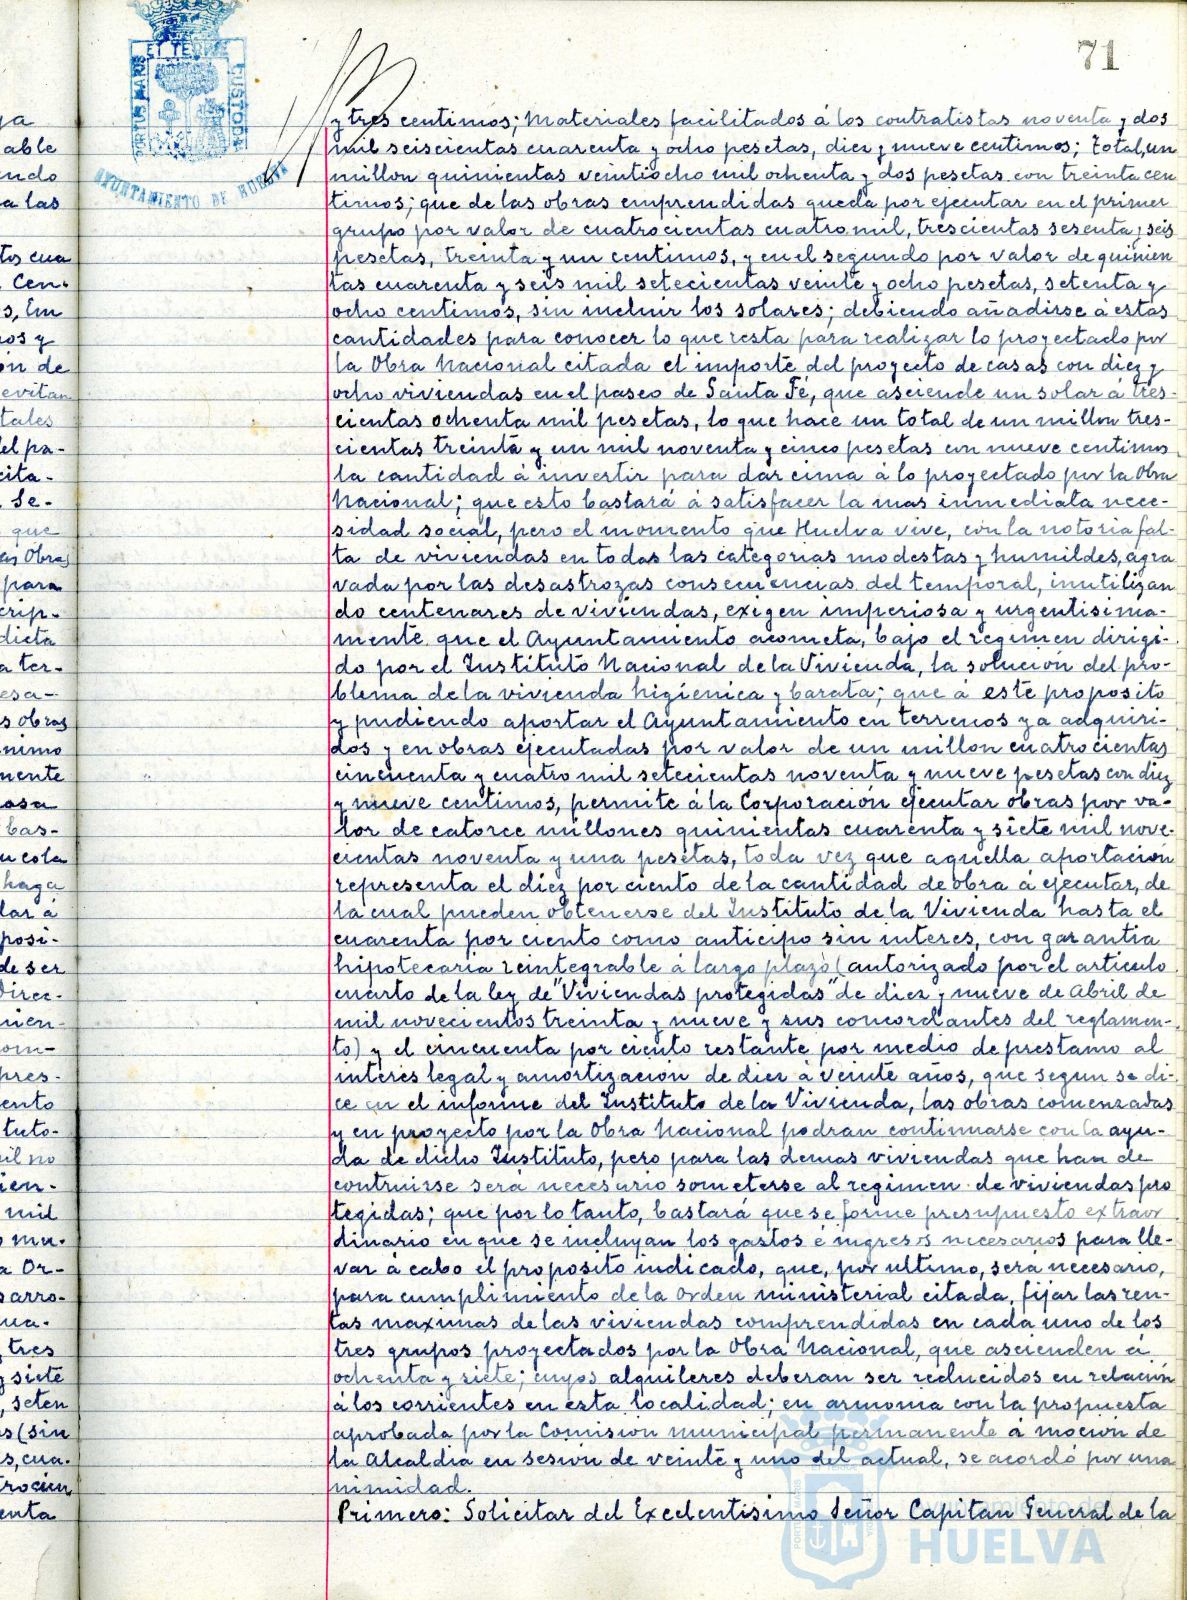 71
PORTUS MARIS ET TERRE CUSTODIA
AYUNTAMIENTO DE HUELVA
y tres centimos; Materiales facilitados á los contratistas noventa y dos
mil seiscientas cuarenta y ocho pesetas, diez y nueve centimos; total, un
millon quinientas veintiocho mil ochenta y dos pesetas con treinta cen
timos; que de las obras emprendidas queda por ejecutar en el primer
grupo por valor de cuatrocientas cuatro mil, trescientas sesenta y seis
pesetas, treinta y un centimos, y en el segundo por valor de quinien
tas cuarenta y seis mil setecientas veinte y ocho pesetas, setenta y
ocho centimos, sin incluir los solares; debiendo añadirse á estas
cantidades para conocer lo que resta para realizar lo proyectado por
la Obra Nacional citada el importe del proyecto de casas con diez y
ocho viviendas en el paseo de Santa Fé, que asciende un solar á tres-
cientas ochenta mil pesetas, lo que hace un total de un millon tres-
cientas treinta y un mil noventa y cinco pesetas con nueve centimos
la cantidad á invertir para dar cima á lo proyectado por la Obra
Nacional; que esto bastará á satisfacer la mas inmediata nece-
sidad social, pero el momento que Huelva vive, con la notoria fal-
ta de viviendas en todas las categorias modestas y humildes, agra
vada por las desastrozas consecuencias del temporal, inutilizan
do centenares de viviendas, exigen imperiosa y urgentisima-
mente que el Ayuntamiento acometa, bajo el regimen dirigi-
do por el Instituto Nacional de la Vivienda, la solución del pro-
blema de la vivienda higienica y barata; que á este proposito
y pudiendo aportar el Ayuntamiento en terrenos ya adquiri-
dos y en obras ejecutadas por valor de un millon cuatrocientas
cincuenta y cuatro mil setecientas noventa y nueve pesetas con diez
y nueve centimos, permite á la Corporación ejecutar obras por va-
lor de catorce millones quinientas cuarenta y siete mil nove-
cientas noventa y una pesetas, toda vez que aquella aportación
representa el diez por ciento de la cantidad de obra á ejecutar, de
la cual pueden obtenerse del Instituto de la Vivienda hasta el
cuarenta por ciento como anticipo sin interes, con garantia
hipotecaria reintegrable á largo plazo (autorizado por el articulo
cuarto de la ley de "Viviendas protegidas" de diez y nueve de Abril de
mil novecientos treinta y nueve y sus concordantes del reglamen-
to) y el cincuenta por ciento restante por medio de prestamo al
interes legal y amortización de diez á veinte años, que segun se di-
ce en el informe del Instituto de la Vivienda, las obras comenzadas
y en proyecto por la Obra Nacional podran continuarse con la ayu-
da de dicho Instituto, pero para las demas viviendas que han de
contruirse será necesario someterse al regimen de viviendas pro
tegidas; que por lo tanto, bastará que se forme presupuesto extraor
dinario en que se incluyan los gastos é ingresos necesarios para lle-
var á cabo el proposito indicado, que, por ultimo, será necesario,
para cumplimiento de la Orden ministerial citada, fijar las ren-
tas maximas de las viviendas comprendidas en cada uno de los
tres grupos proyectados por la Obra Nacional, que ascienden á
ochenta y siete; cuyos alquileres deberan ser reducidos en relación
á los corrientes en esta localidad; en armonia con la propuesta
aprobada por la Comision municipal permanente á moción de
la Alcaldia en sesión de veinte y uno del actual, se acordó por una
nimidad.
Primero: Solicitar del Excelentisimo Señor Capitan General de la
ayuntamiento de
HUELVA